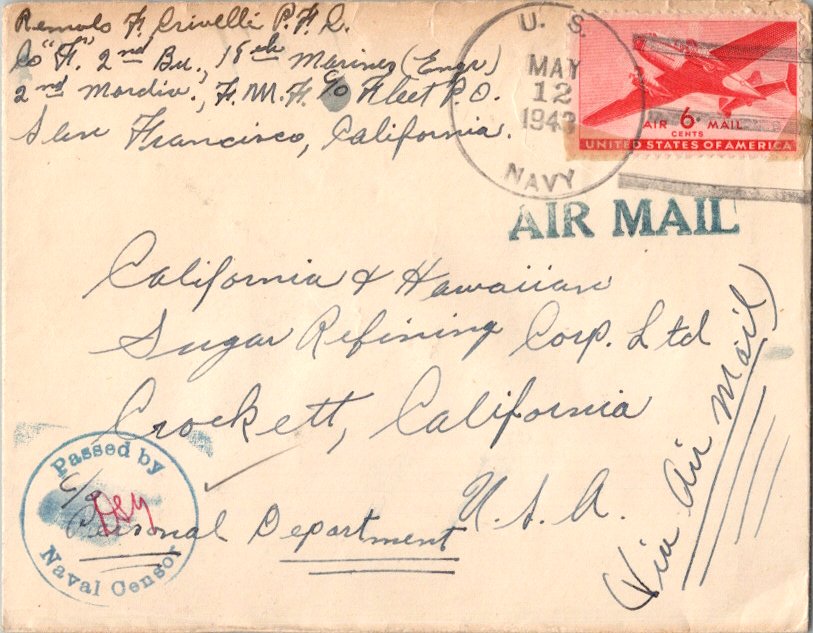 Remolo F. Crivelli P.F.C.
Co "F". 2nd Bn., 18th Marines (Engr)
2nd Mardiv., F.M.F. c/o Fleet P.O.
San Francisco, California.
U. S.
MAY
12
1943
NAVY
AIR 6¢ MAIL
CENTS
UNITED STATES OF AMERICA
AIR MAIL
California & Hawaiian
Sugar Refining Corp. Ltd
Crockett, California
U. S. A.
(Via Air Mail)
Passed by
Naval Censor
c/o
Personal Department